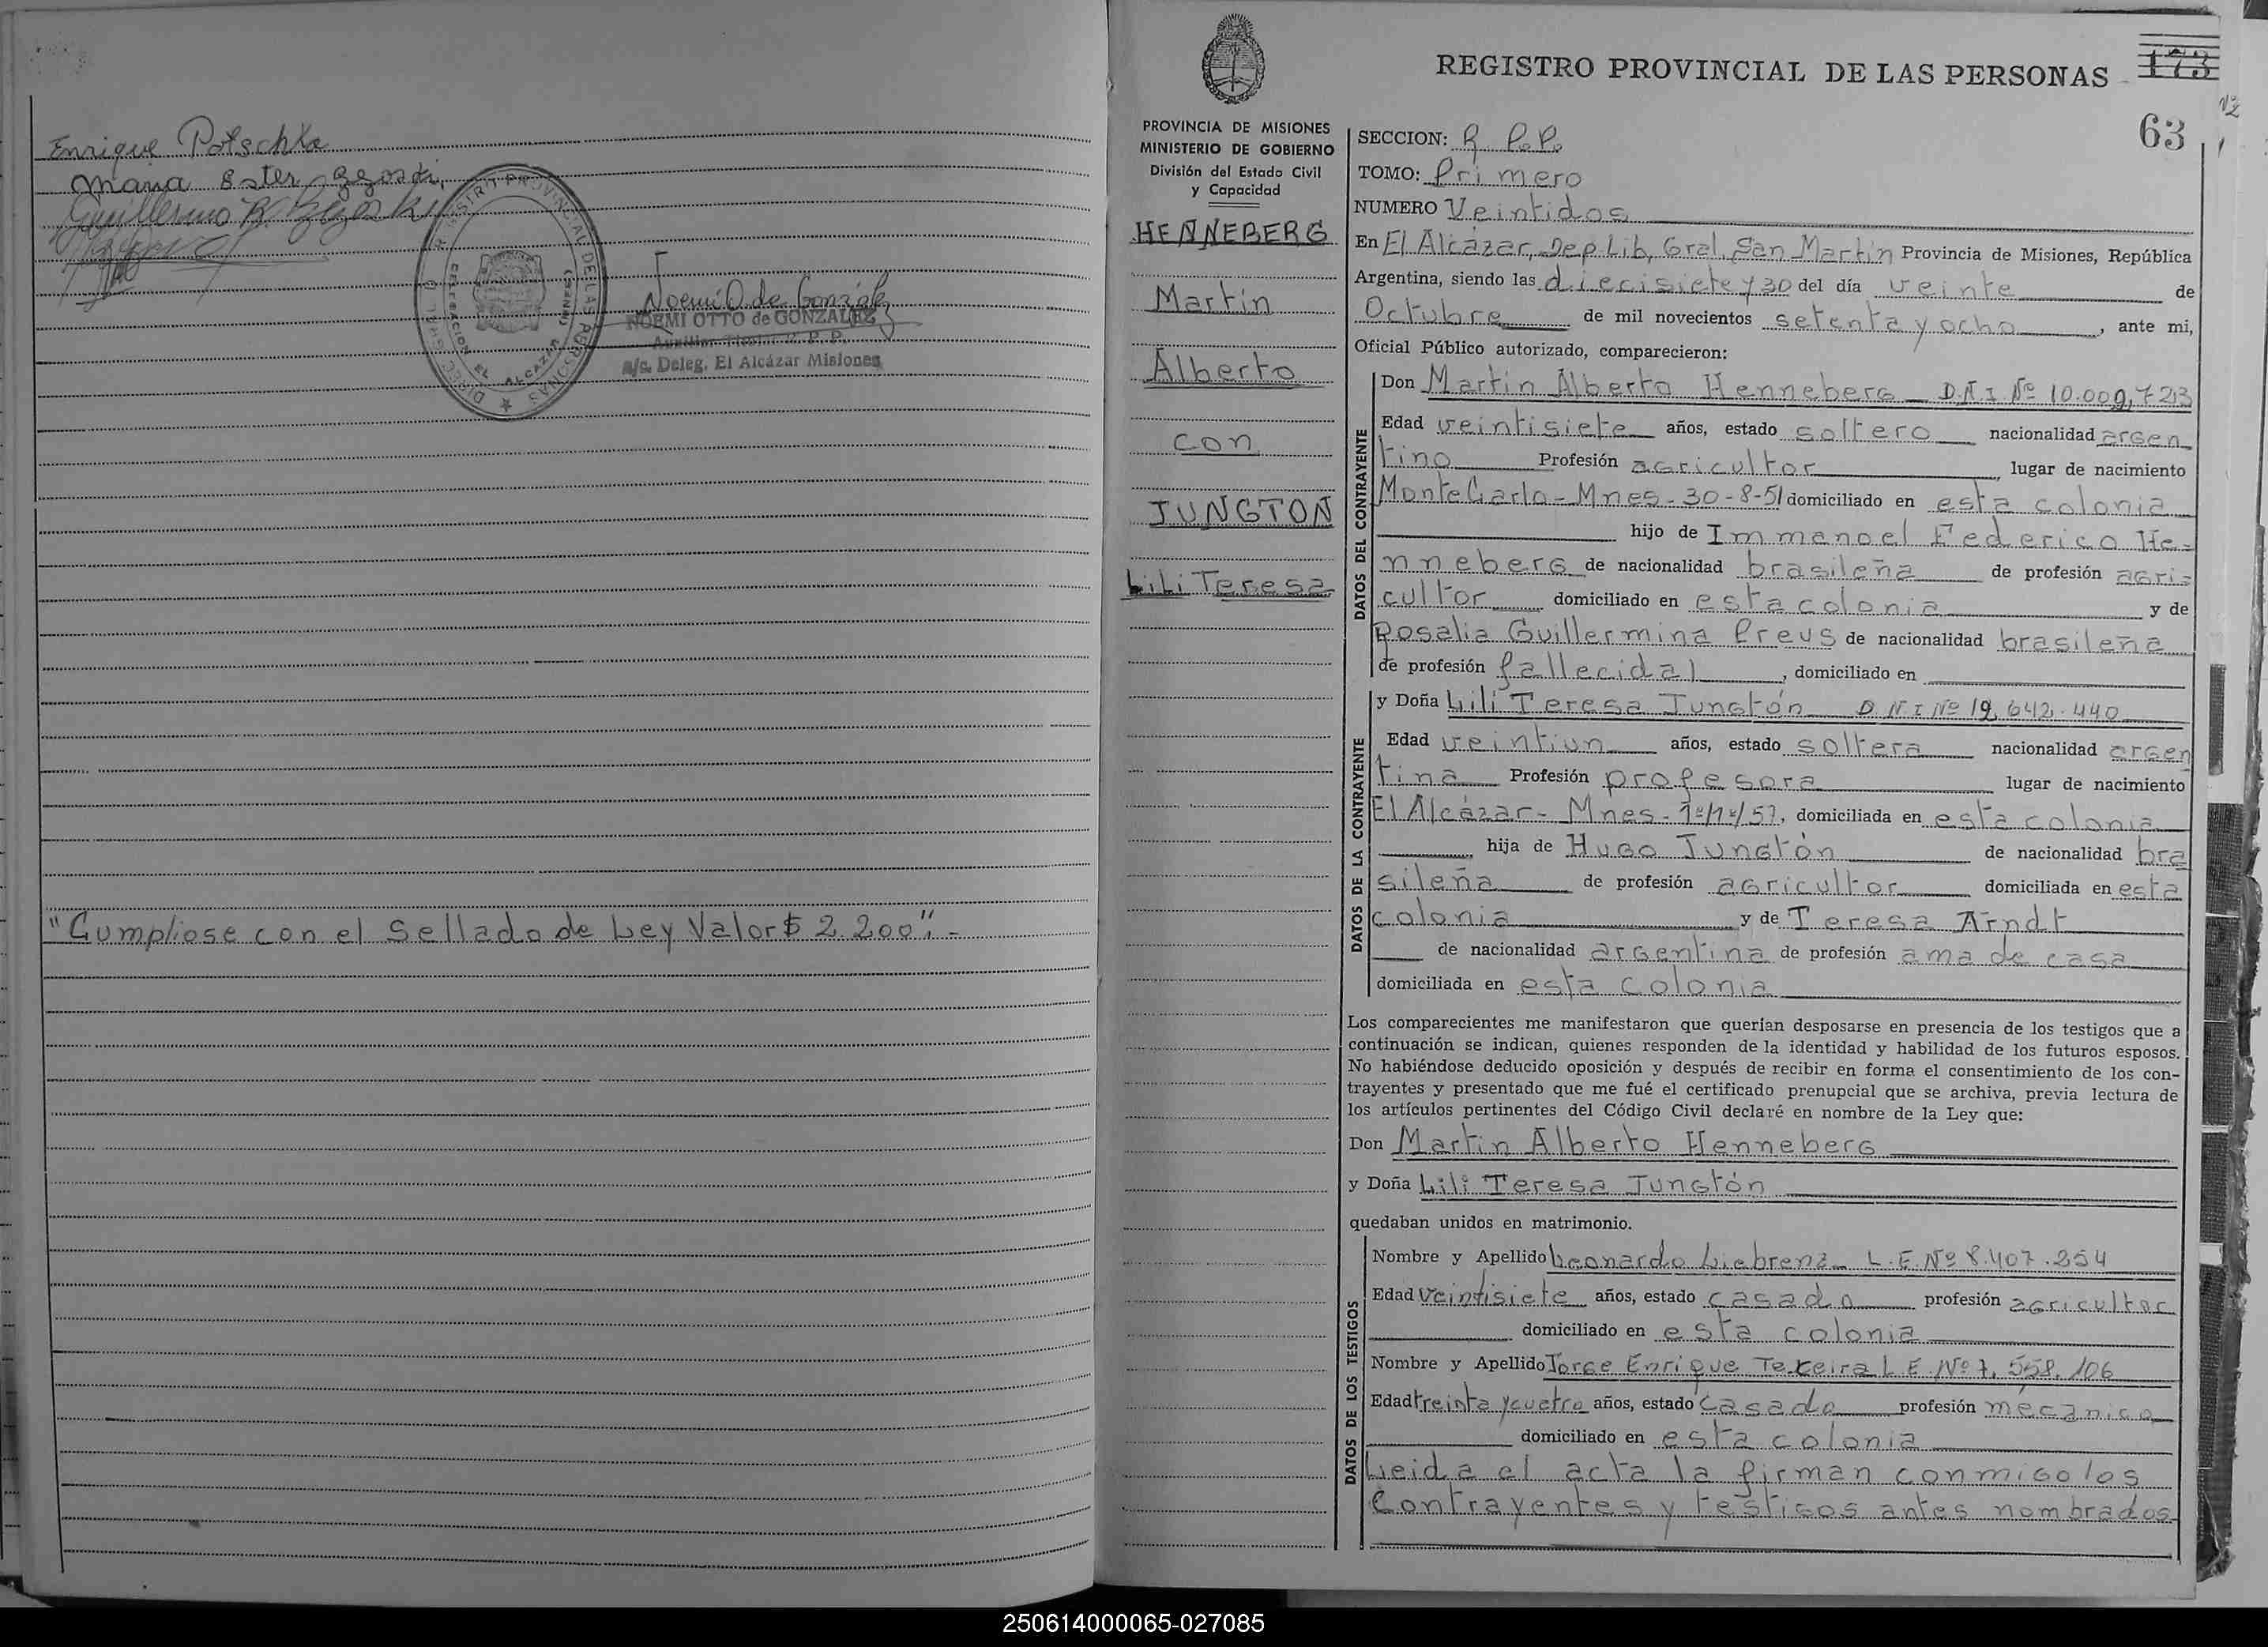 Enrique Potschka
Maria Ester
Guillermo R.
REGISTRO PROVINCIAL DE LAS PERSONAS
DELEGACION EL ALCAZAR
Noemi O de González
NOEMI OTTO de GONZALEZ
Auxiliar R. P. P.
a/c. Deleg. El Alcázar Misiones
"Cumpliose con el Sellado de Ley Valor $ 2.200".-
REGISTRO PROVINCIAL DE LAS PERSONAS
173
63
PROVINCIA DE MISIONES
MINISTERIO DE GOBIERNO
División del Estado Civil
y Capacidad
HENNEBERG
Martin
Alberto
con
JUNGTON
Lili Teresa
SECCION: R P.P.
TOMO: Primero
NUMERO Veintidos
En El Alcázar, Dep Lib, Gral. San Martin Provincia de Misiones, República
Argentina, siendo las diecisiete y 30 del día veinte de
Octubre de mil novecientos setenta y ocho, ante mi,
Oficial Público autorizado, comparecieron:
DATOS DEL CONTRAYENTE
Don Martin Alberto Henneberg D.N.I Nº 10.009,723
Edad veintisiete años, estado soltero nacionalidad argen
tino Profesión agricultor, lugar de nacimiento
Monte Carlo - Mnes - 30-8-51 domiciliado en esta colonia
hijo de Immanoel Federico He-
nneberg de nacionalidad brasileña de profesión agri-
cultor domiciliado en esta colonia y de
Rosalia Guillermina Preus de nacionalidad brasileña
de profesión fallecida, domiciliado en
DATOS DE LA CONTRAYENTE
y Doña Lili Teresa Jungtón D.N.I Nº 12,642.440
Edad veintiun años, estado soltera nacionalidad argen
tina Profesión profesora lugar de nacimiento
El Alcázar - Mnes - domiciliada en esta colonia
hija de Hugo Jungtón de nacionalidad bra
sileña de profesión agricultor domiciliada en esta
colonia y de Teresa Arndt
de nacionalidad argentina de profesión ama de casa
domiciliada en esta colonia
Los comparecientes me manifestaron que querían desposarse en presencia de los testigos que a
continuación se indican, quienes responden de la identidad y habilidad de los futuros esposos.
No habiéndose deducido oposición y después de recibir en forma el consentimiento de los con-
trayentes y presentado que me fué el certificado prenupcial que se archiva, previa lectura de
los artículos pertinentes del Código Civil declaré en nombre de la Ley que:
Don Martin Alberto Henneberg
y Doña Lili Teresa Jungtón
quedaban unidos en matrimonio.
DATOS DE LOS TESTIGOS
Nombre y Apellido Leonardo Liebrenz L.E.Nº 8.407.254
Edad Veintisiete años, estado casado profesión agricultor
domiciliado en esta colonia
Nombre y Apellido Jorge Enrique Texeira L E Nº 7.558.106
Edad treinta y cuatro años, estado casado profesión mecánico
domiciliado en esta colonia
Leida el acta la firman conmigo los
Contrayentes y testigos antes nombrados
250614000065-027085